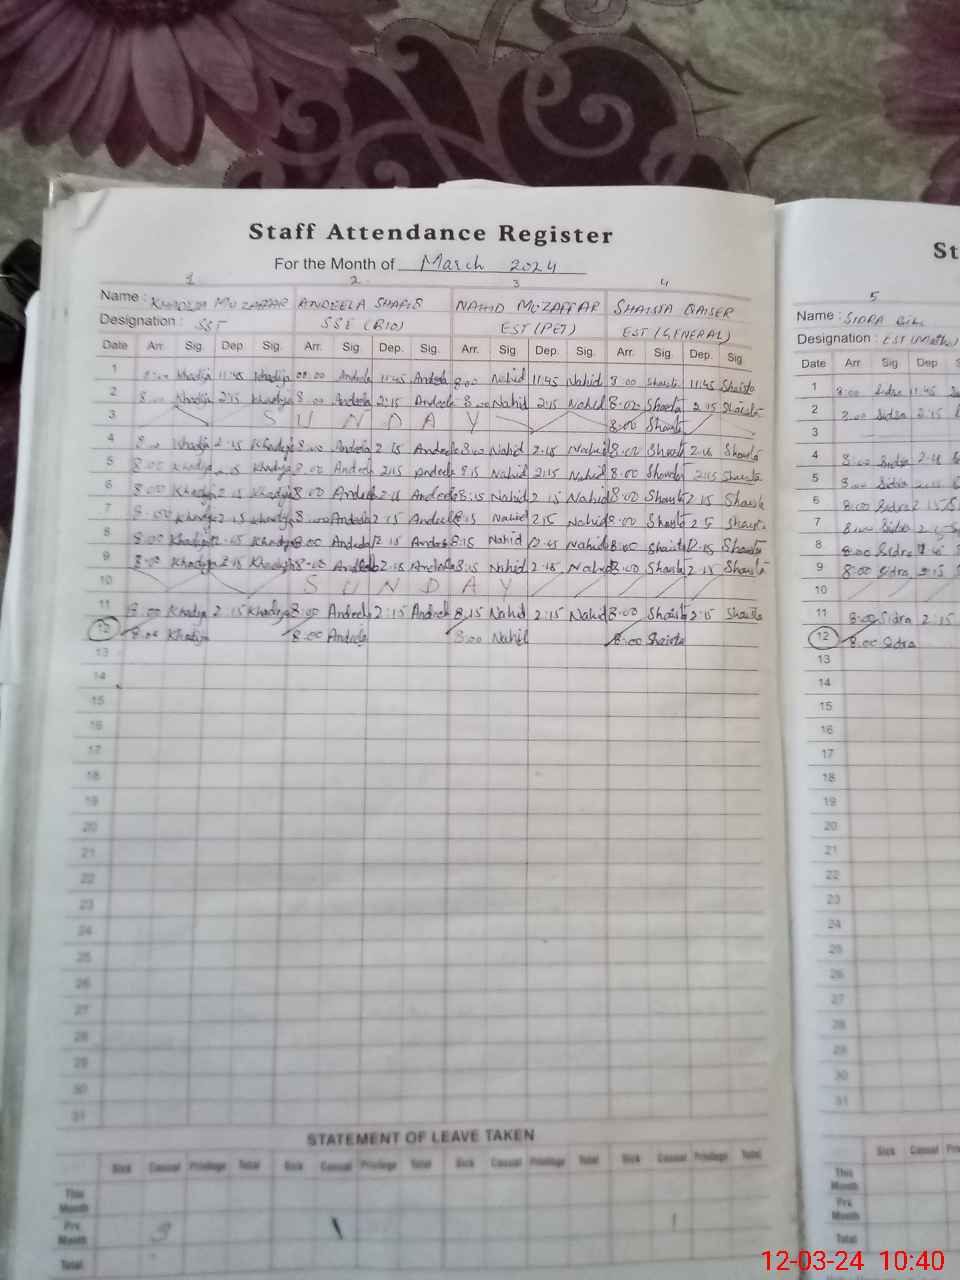 Staff Attendance Register
For the Month of March 2024
1 2 3 4
Name : KHADIJA MUZAFFAR ANDEELA SHAFIS NAHID MUZAFFAR SHAISTA QAISER
Designation : SST SSE (BIO) EST (PET) EST (GENERAL)
Date Arr. Sig. Dep. Sig. Arr. Sig. Dep. Sig. Arr. Sig. Dep. Sig. Arr. Sig. Dep. Sig.
1 8:00 Khadija 11:45 Khadija 08:00 Andeela 11:45 Andeela 8:00 Nahid 11:45 Nahid 8:00 Shaista 11:45 Shaista
2 8:00 Khadija 2:15 Khadija 8:00 Andeela 2:15 Andeela 8:00 Nahid 2:15 Nahid 8:00 Shaista 2:15 Shaista
3 SUNDAY 8:00 Shaista
4 8:00 Khadija 2:15 Khadija 8:00 Andeela 2:15 Andeela 8:00 Nahid 2:15 Nahid 8:00 Shaista 2:15 Shaista
5 8:00 Khadija 2:15 Khadija 8:00 Andeela 2:15 Andeela 8:15 Nahid 2:15 Nahid 8:00 Shaista 2:15 Shaista
6 8:00 Khadija 2:15 Khadija 8:00 Andeela 2:15 Andeela 8:15 Nahid 2:15 Nahid 8:00 Shaista 2:15 Shaista
7 8:00 Khadija 2:15 Khadija 8:00 Andeela 2:15 Andeela 8:15 Nahid 2:15 Nahid 8:00 Shaista 2:15 Shaista
8 8:00 Khadija 2:15 Khadija 8:00 Andeela 2:15 Andeela 8:15 Nahid 2:45 Nahid 8:00 Shaista 2:15 Shaista
9 8:00 Khadija 2:15 Khadija 8:00 Andeela 2:15 Andeela 8:15 Nahid 2:15 Nahid 8:00 Shaista 2:15 Shaista
10 SUNDAY
11 8:00 Khadija 2:15 Khadija 8:00 Andeela 2:15 Andeela 8:15 Nahid 2:15 Nahid 8:00 Shaista 2:15 Shaista
12 8:00 Khadija 8:00 Andeela 8:00 Nahid 8:00 Shaista
13
14
15
16
17
18
19
20
21
22
23
24
25
26
27
28
29
30
31
STATEMENT OF LEAVE TAKEN
Sick Casual Privilege Total Sick Casual Privilege Total Sick Casual Privilege Total Sick Casual Privilege Total
This Month
Prv. Month 3 1 1
Total
St
5
Name : SIDRA BIBI
Designation : EST (Maths)
Date Arr Sig Dep S
1 8:00 Sidra 11:45
2 8:00 Sidra 2:15
3
4 8:00 Sidra 2:15
5 8:00 Sidra
6 8:00 Sidra 2:15
7 8:00 Sidra 2:15
8 8:00 Sidra 2:15
9 8:00 Sidra 2:15
10
11 8:00 Sidra 2:15
12 8:00 Sidra
13
14
15
16
17
18
19
20
21
22
23
24
25
26
27
28
29
30
31
Sick Casual Pri
This Month
Prv. Month
Total
12-03-24 10:40